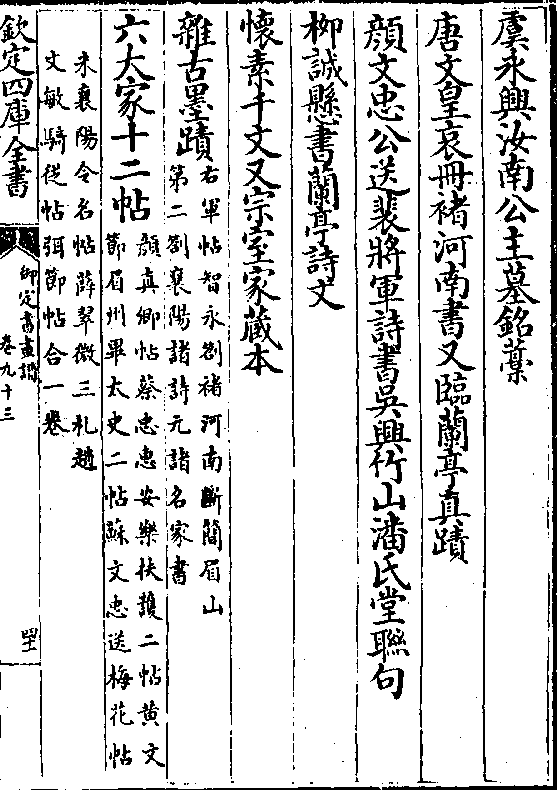 虞永興汝南公主墓銘藁
唐文皇哀冊褚河南書又臨蘭亭真蹟
顔文忠公送裴將軍詩書吳興竹山潘氏堂聯句
柳誠懸書蘭亭詩文
懷素千文又宗室家藏本
雜古墨蹟右軍帖智永劄褚河南斷簡眉山
第二劄襄陽諸詩元諸名家書
六大家十二帖顔真卿帖蔡忠惠安樂扶護二帖黄文
節眉州畢太史二帖蘇文忠送梅花帖
米襄陽令名帖薛翠微三札趙
文敏騎從帖弭節帖合一卷
欽定四庫全書
御定書畫譜
卷九十三